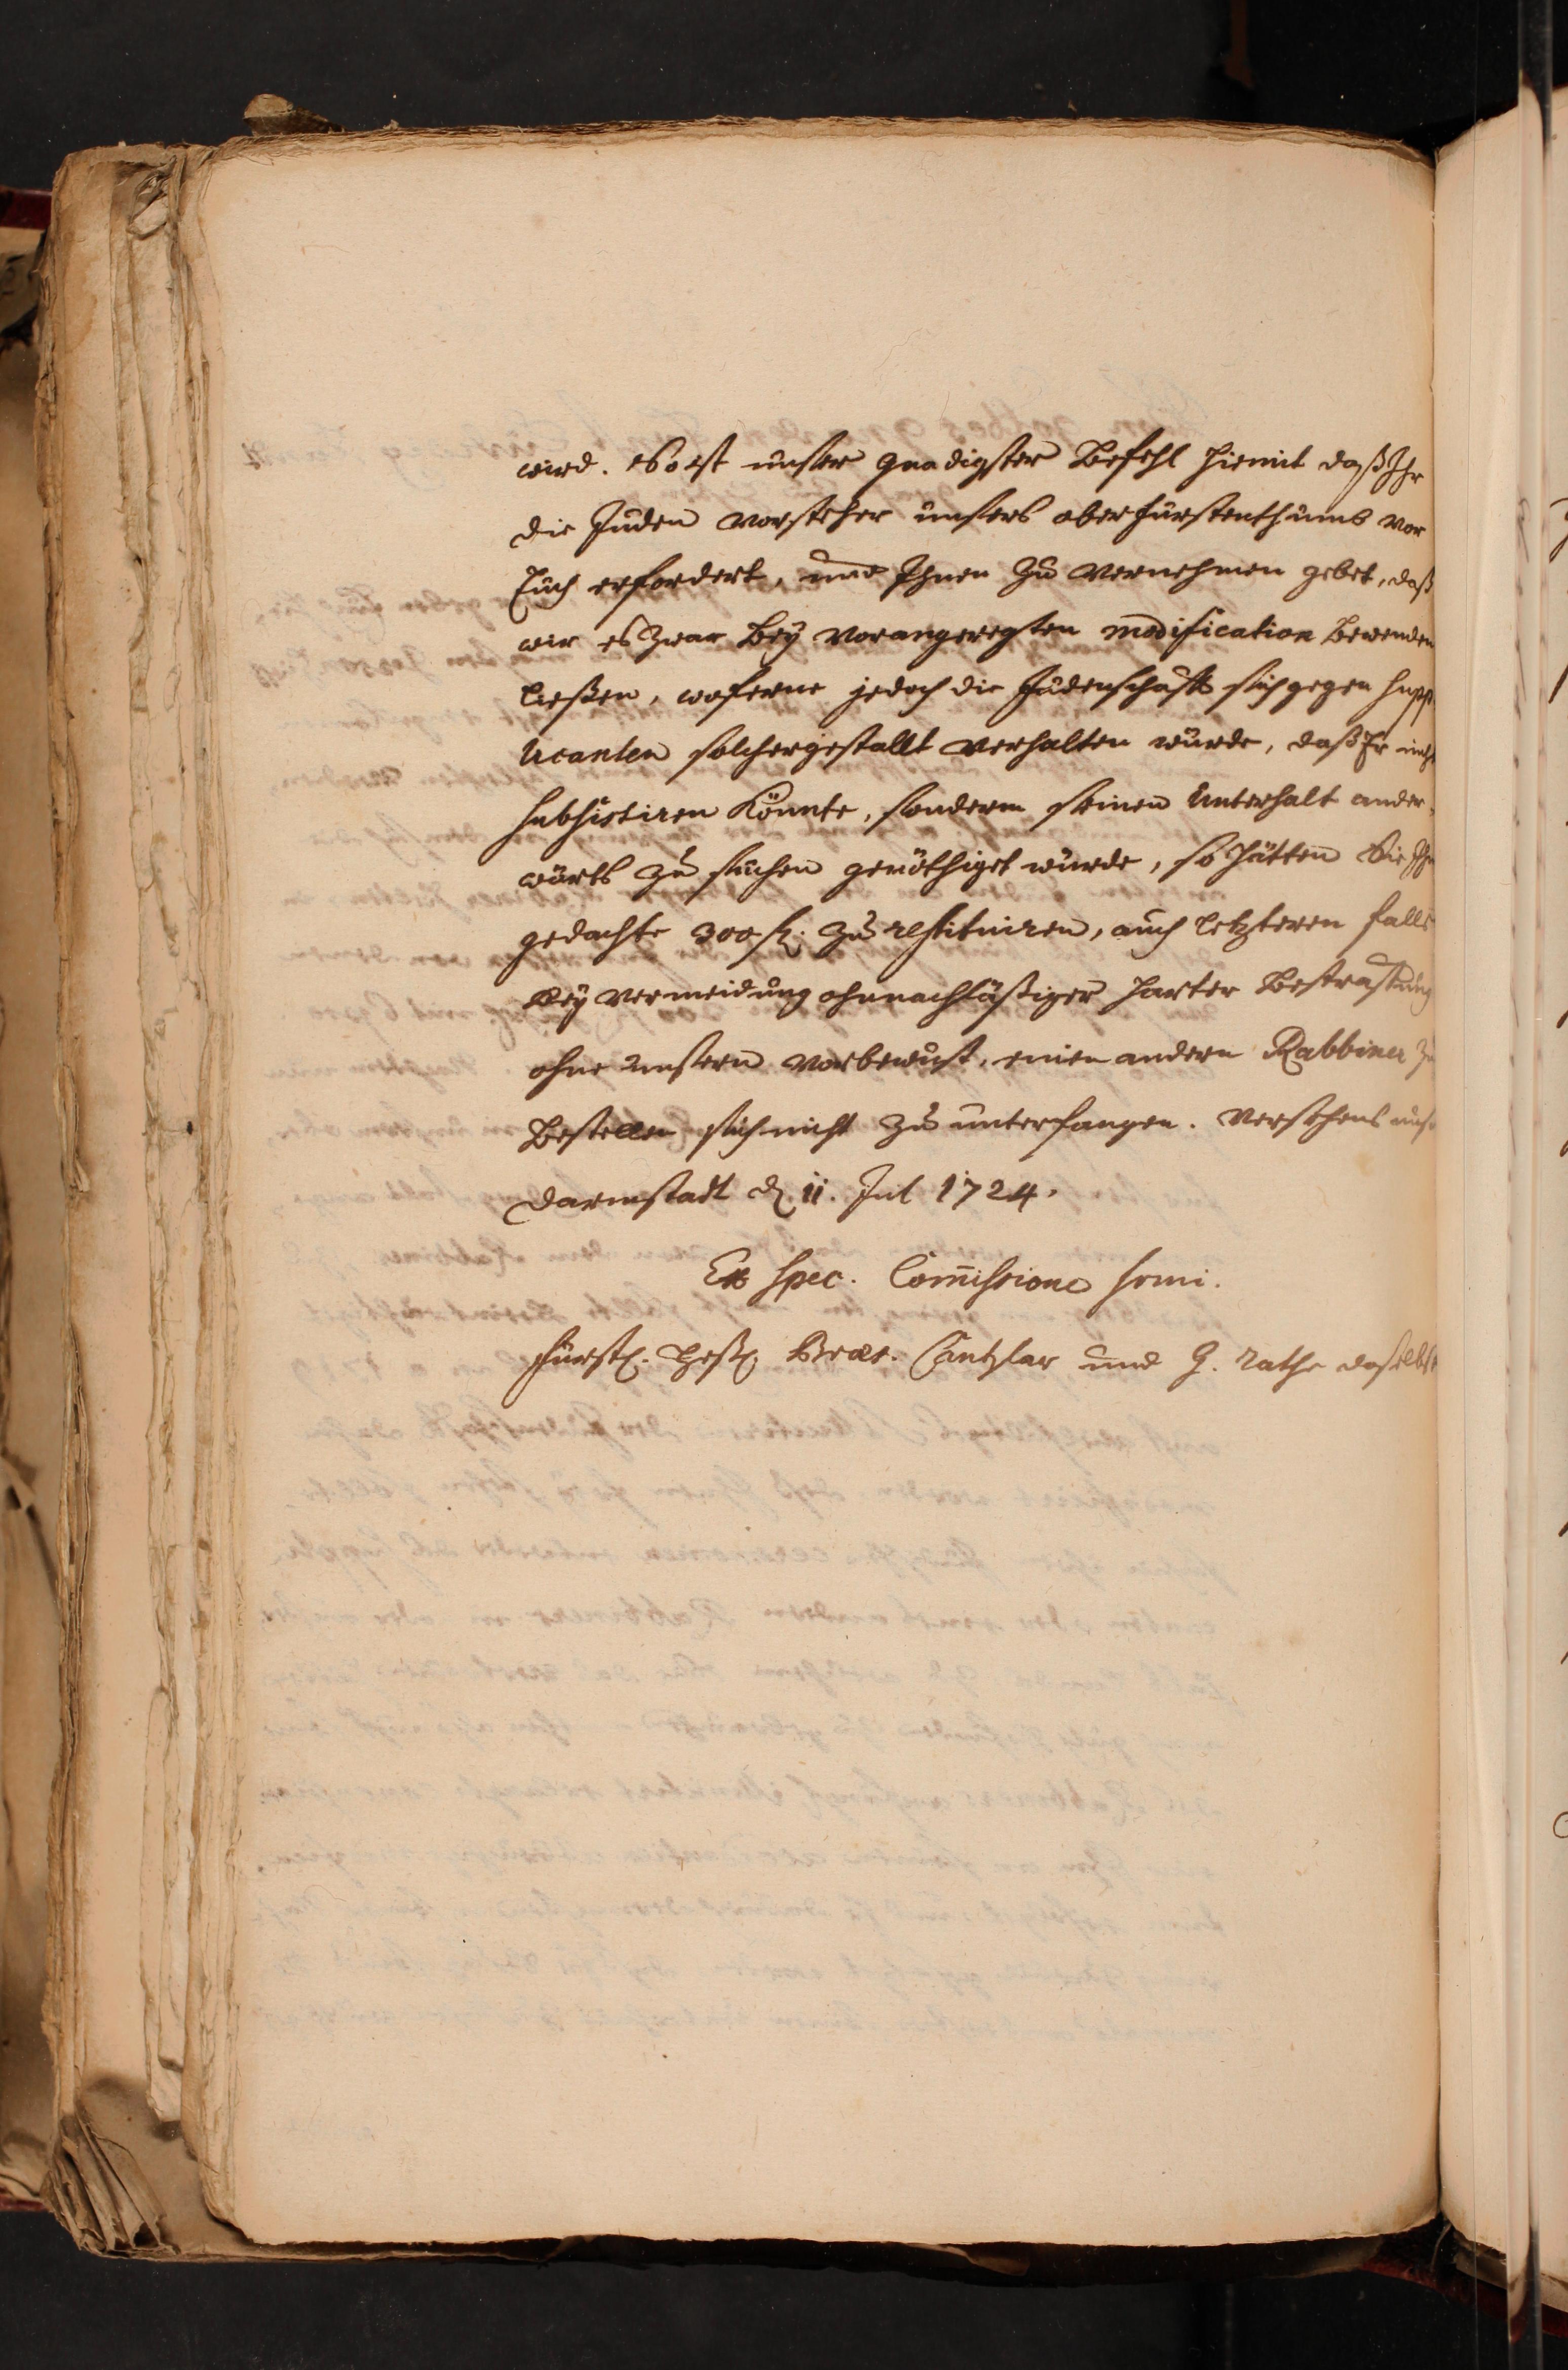 wird. Es ist unser gnädigster Befehl hiemit daß Ihr
die Juden Vorsteher unsers oberfürstenthumbs vor
Euch erfordert, und Ihnen zu vernehmen gebet, daß
wir es zwar bey vorangeregten modification bewenden
ließen, woferne jedoch die Judenschafft sich gegen Supp-
licanten solchergestallt verhalten würde, daß Er nicht
subsistiren könnte, sondern seinen Unterhalt ander-
wärts zu suchen genöthiget würde, so hätten Sie Ihm
gedachte 300 fl. zu restituiren, auch letzteren falls
bey vermeidung ohnnachläßiger harter bestraffung
ohne unsern vorbewust, einen andern Rabbiner zu
bestellen sich nicht zu unterfangen. Versehens uns
Darmstadt d. 11. Jul 1724.
Ex Spec. Commissione Srmi.
Fürstl. Heßl. Cantzlar und G. Rathe daselbst